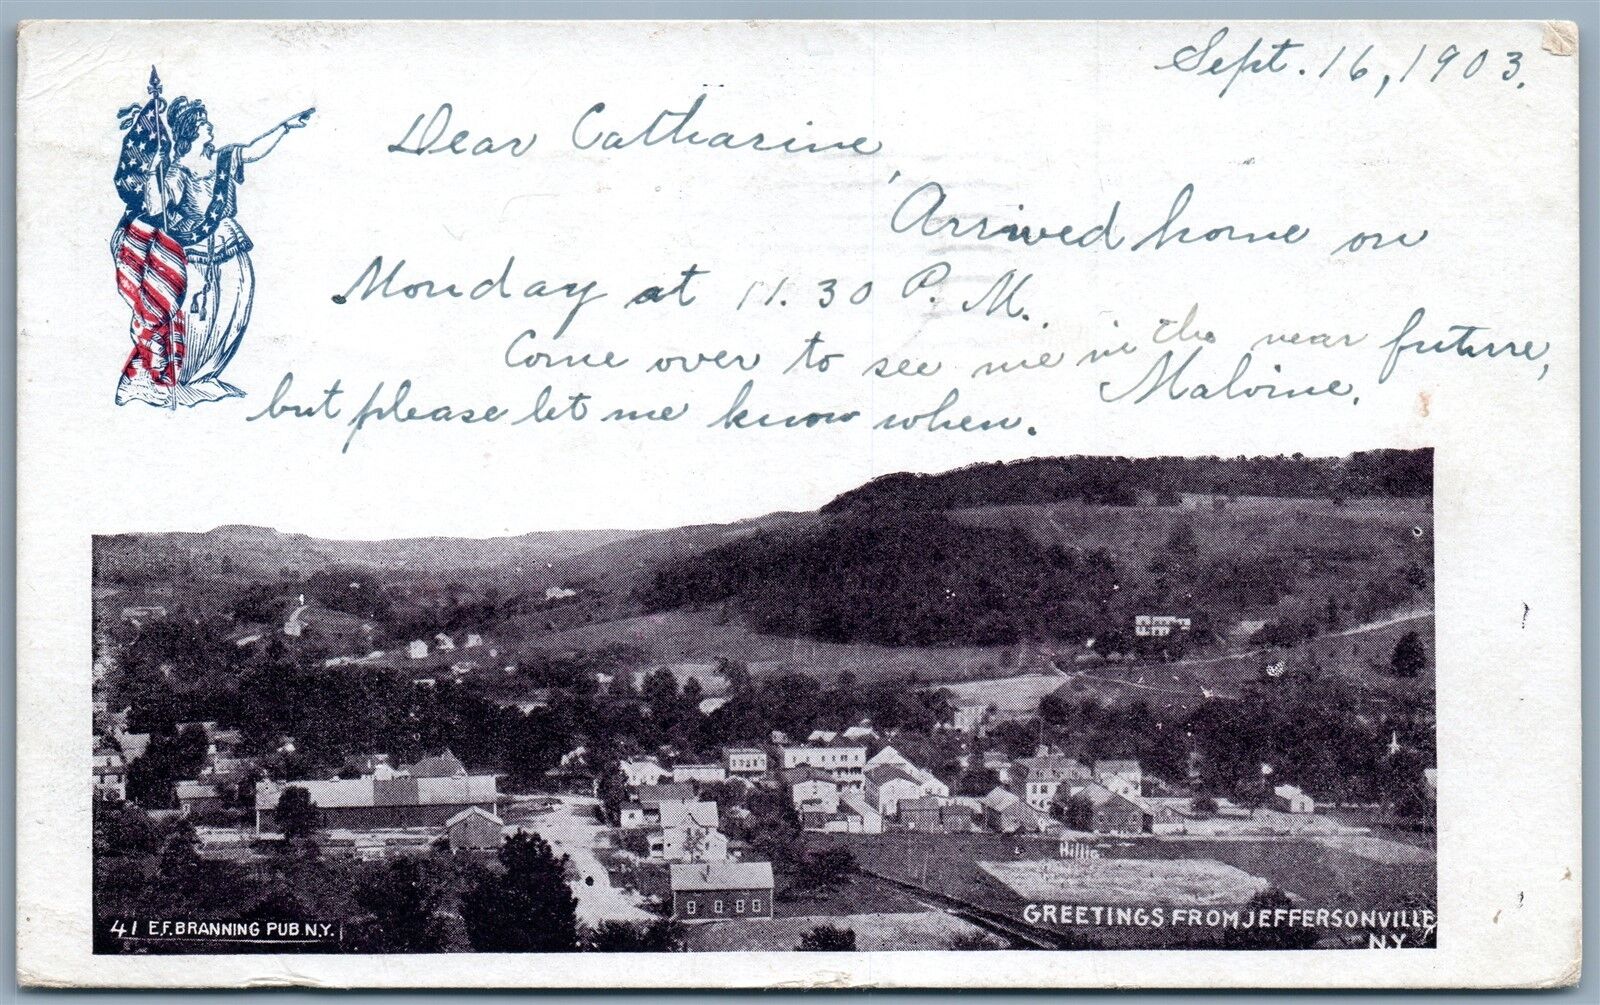 Sept. 16, 1903.
Dear Catharine,
Arrived home on
Monday at 11.30 P. M.
Come over to see me in the near future,
but please let me know when. Malvine.
41 E.F. BRANNING PUB N.Y.
GREETINGS FROM JEFFERSONVILLE
N.Y.